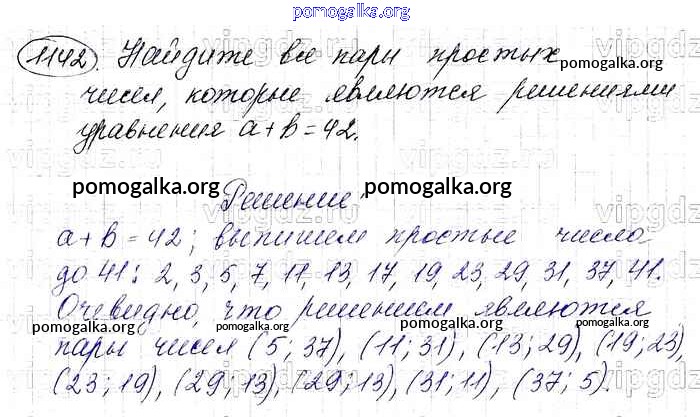 pomogalka.org
1142. Найдите все пары простых
pomogalka.org
чисел, которые являются решениями
уравнения a+b=42.
pomogalka.org pomogalka.org
Решение
a+b=42; выпишем простые числа
до 41: 2, 3, 5, 7, 11, 13, 17, 19, 23, 29, 31, 37, 41.
Очевидно, что решением являются
pomogalka.org pomogalka.org pomogalka.org
пары чисел (5;37), (11;31), (13;29), (19;23),
(23;19), (29;13), (29;13), (31;11), (37;5).